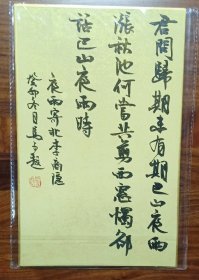 君问歸期未有期巴山夜雨
漲秋池何當共剪西窓燭却
話巴山夜雨時
夜雨寄北李商隐
癸卯冬月